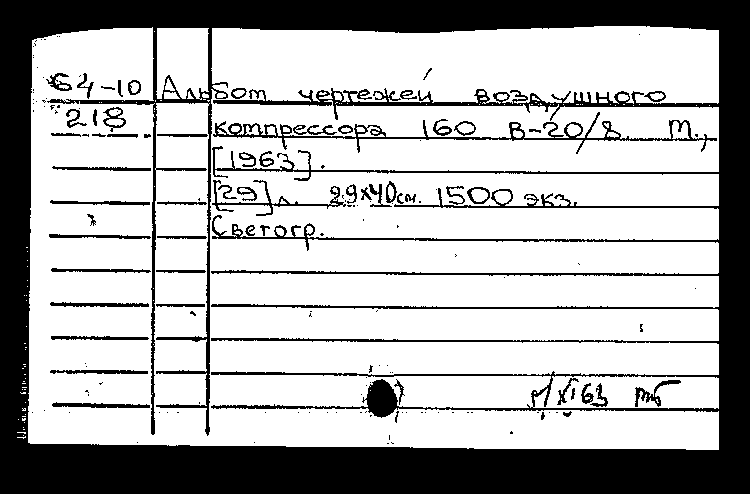 64-10 Альбом чертежей воздушного
218 компрессора 160 В-20/8. М.,
[1963].
[29] л. 29х40 см. 1500 экз.
Светогр.